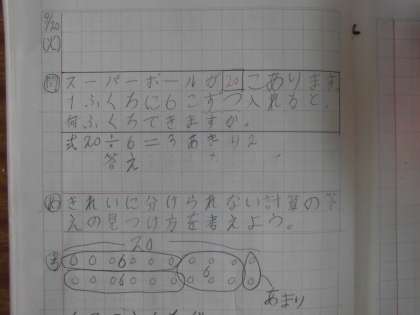 9/20
(火)
問 スーパーボールが20こあります。
1ふくろに6こずつ入れると、
何ふくろできますか。
式 20÷6=3あまり2
答え
め きれいに分けられない計算の答
えの見つけ方を考えよう。
20
6
6
6
あまり